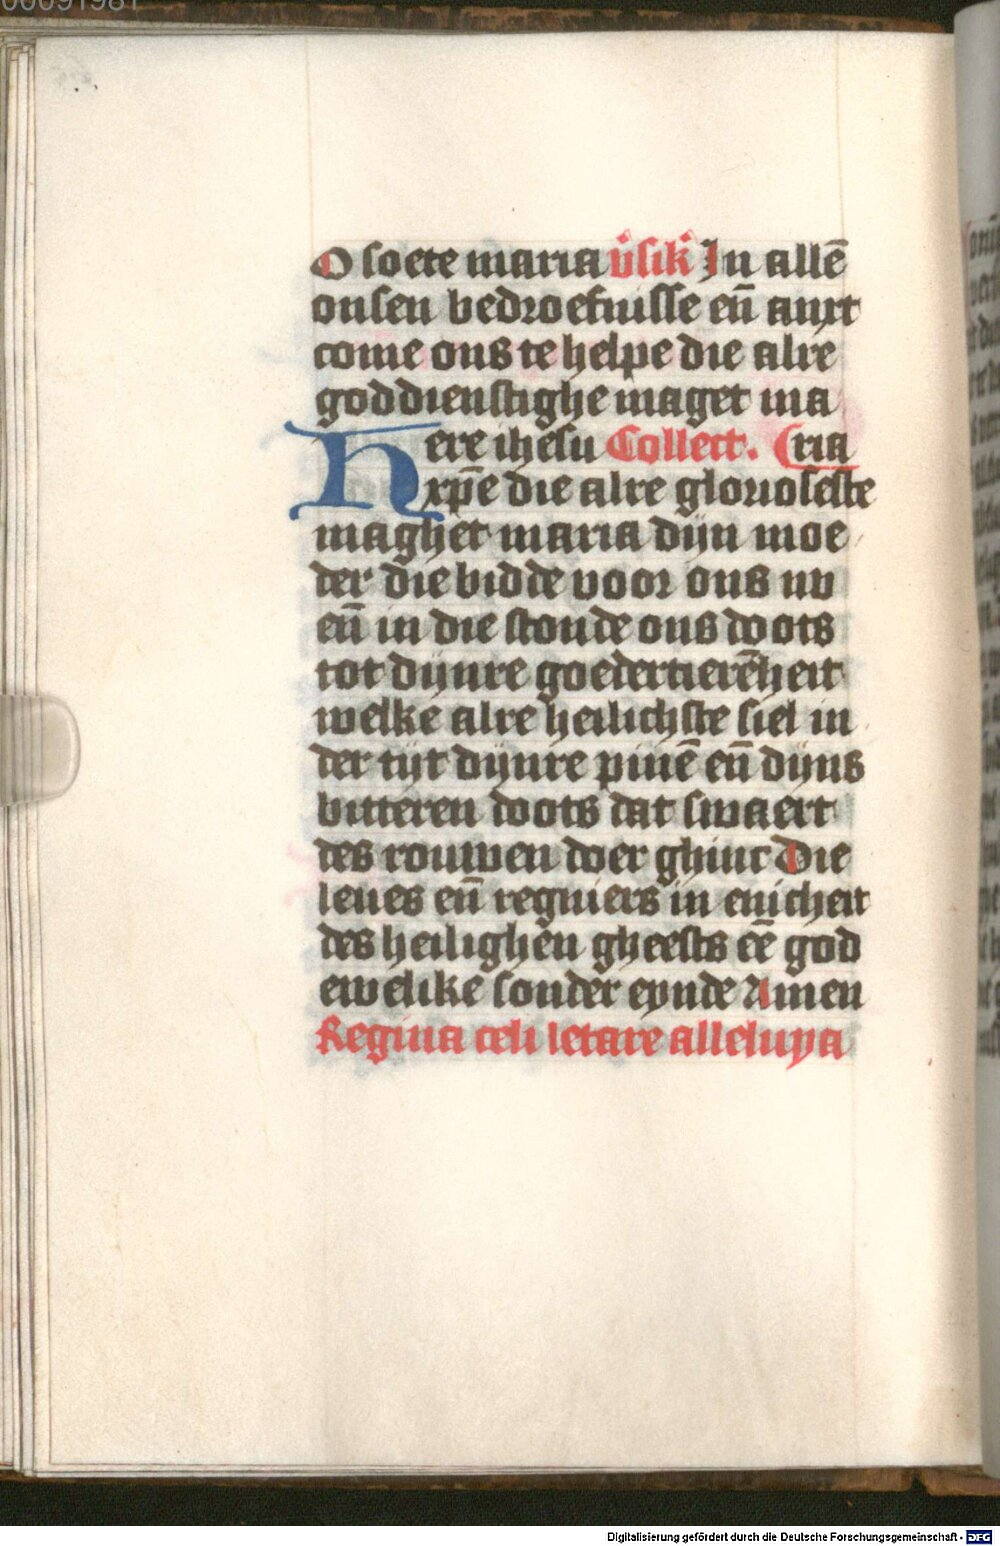 O soete maria v̄sik̄ In allē
onsen bedroefnisse en̄ anxt
come ons te helpe die alre
goddienstighe maget ma
ere ihesu Collect. (ria
H xp̄e die alre glorioseste
maghet maria dijn moe
der die bidde voor ons nv
en̄ in die stonde ons doots
tot dijnre goedertierēheit
welke alre heilichste siel in
der tijt dijnre pinē en̄ dijns
bitteren doots dat swaert
des rouwen doer ghinc Die
leues en̄ regniers in enicheit
des heilighen gheests eē god
ewelike sonder eynde Amen
Regina celi letare alleluya
Digitalisierung gefördert durch die Deutsche Forschungsgemeinschaft - DFG